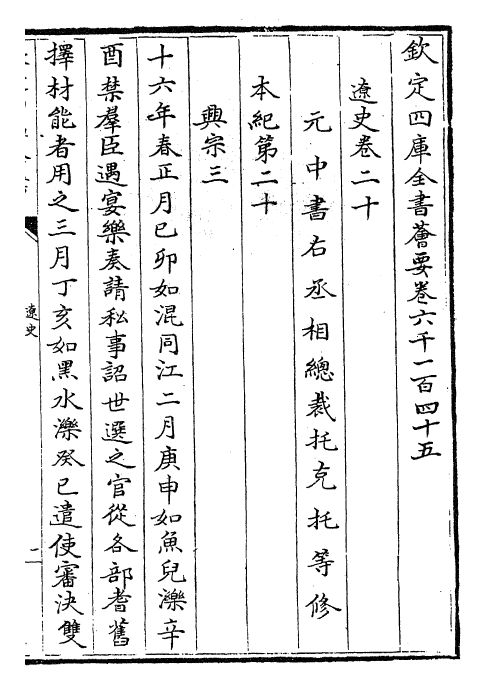 欽定四庫全書薈要卷六千一百四十五
遼史卷二十
元中書右丞相總裁托克托等修
本紀第二十
興宗三
十六年春正月已卯如混同江二月庚申如魚兒濼辛
酉禁羣臣遇宴樂奏請私事詔世選之官從各部耆舊
擇材能者用之三月丁亥如黑水濼癸巳遣使審決雙
遼史